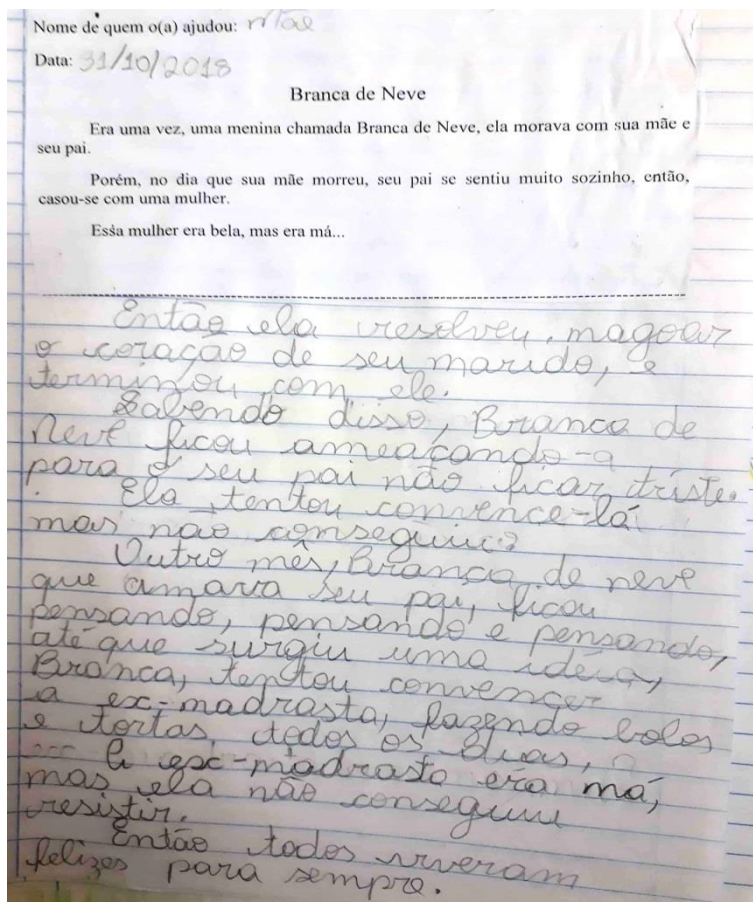 Nome de quem o(a) ajudou: Mãe
Data: 31/10/2018
Branca de Neve
Era uma vez, uma menina chamada Branca de Neve, ela morava com sua mãe e
seu pai.
Porém, no dia que sua mãe morreu, seu pai se sentiu muito sozinho, então,
casou-se com uma mulher.
Essa mulher era bela, mas era má...
Então ela resolveu, magoar
o coração de seu marido, e
terminou com ele.
Sabendo disso, Branca de
Neve ficou ameaçando-a
para o seu pai não ficar triste.
Ela tentou convence-lá
mas não conseguiu
Outro mês, Branca de neve
que amava seu pai, ficou
pensando, pensando e pensando,
até que surgiu uma idéia,
Branca, tentou convencer
a ex-madrasta, fazendo bolos
e tortas, todos os dias,
A ex-madrasta era má,
mas ela não conseguiu
resistir.
Então todos viveram
felizes para sempre.